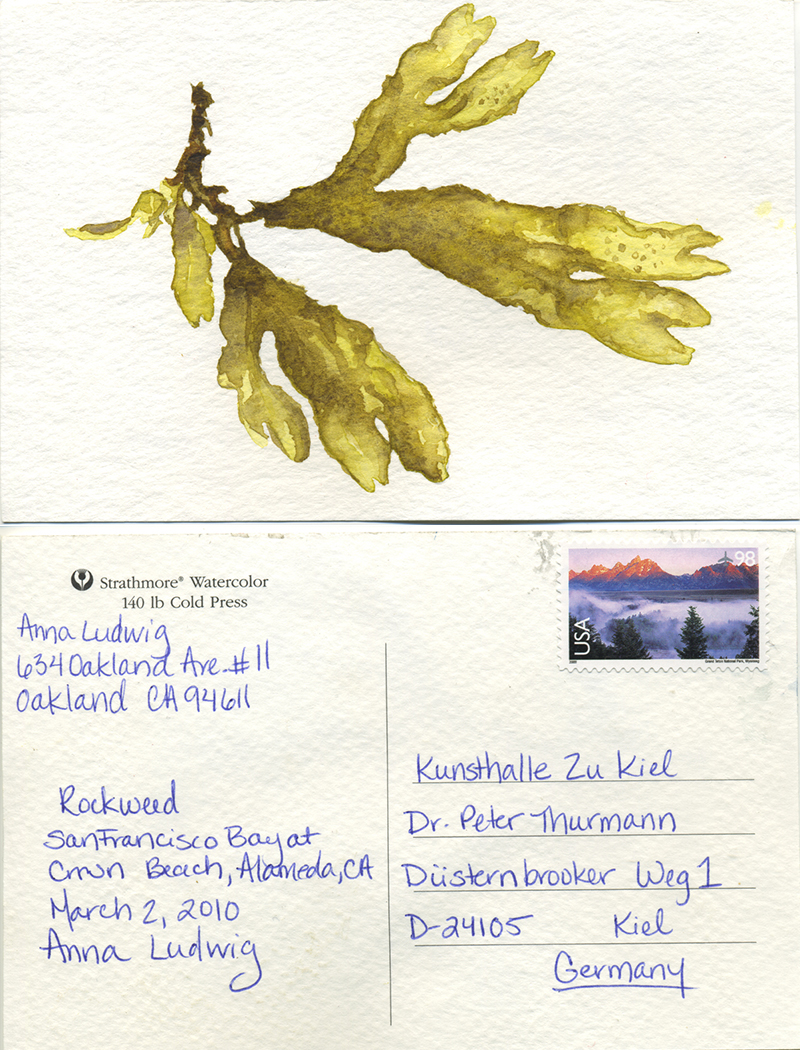 Strathmore® Watercolor
140 lb Cold Press
Anna Ludwig
634 Oakland Ave. #11
Oakland CA 94611
Rockweed
San Francisco Bay at
Crown Beach, Alameda, CA
March 2, 2010
Anna Ludwig
98
USA
Kunsthalle Zu Kiel
Dr. Peter Thurmann
Düsternbrooker Weg 1
D-24105 Kiel
Germany